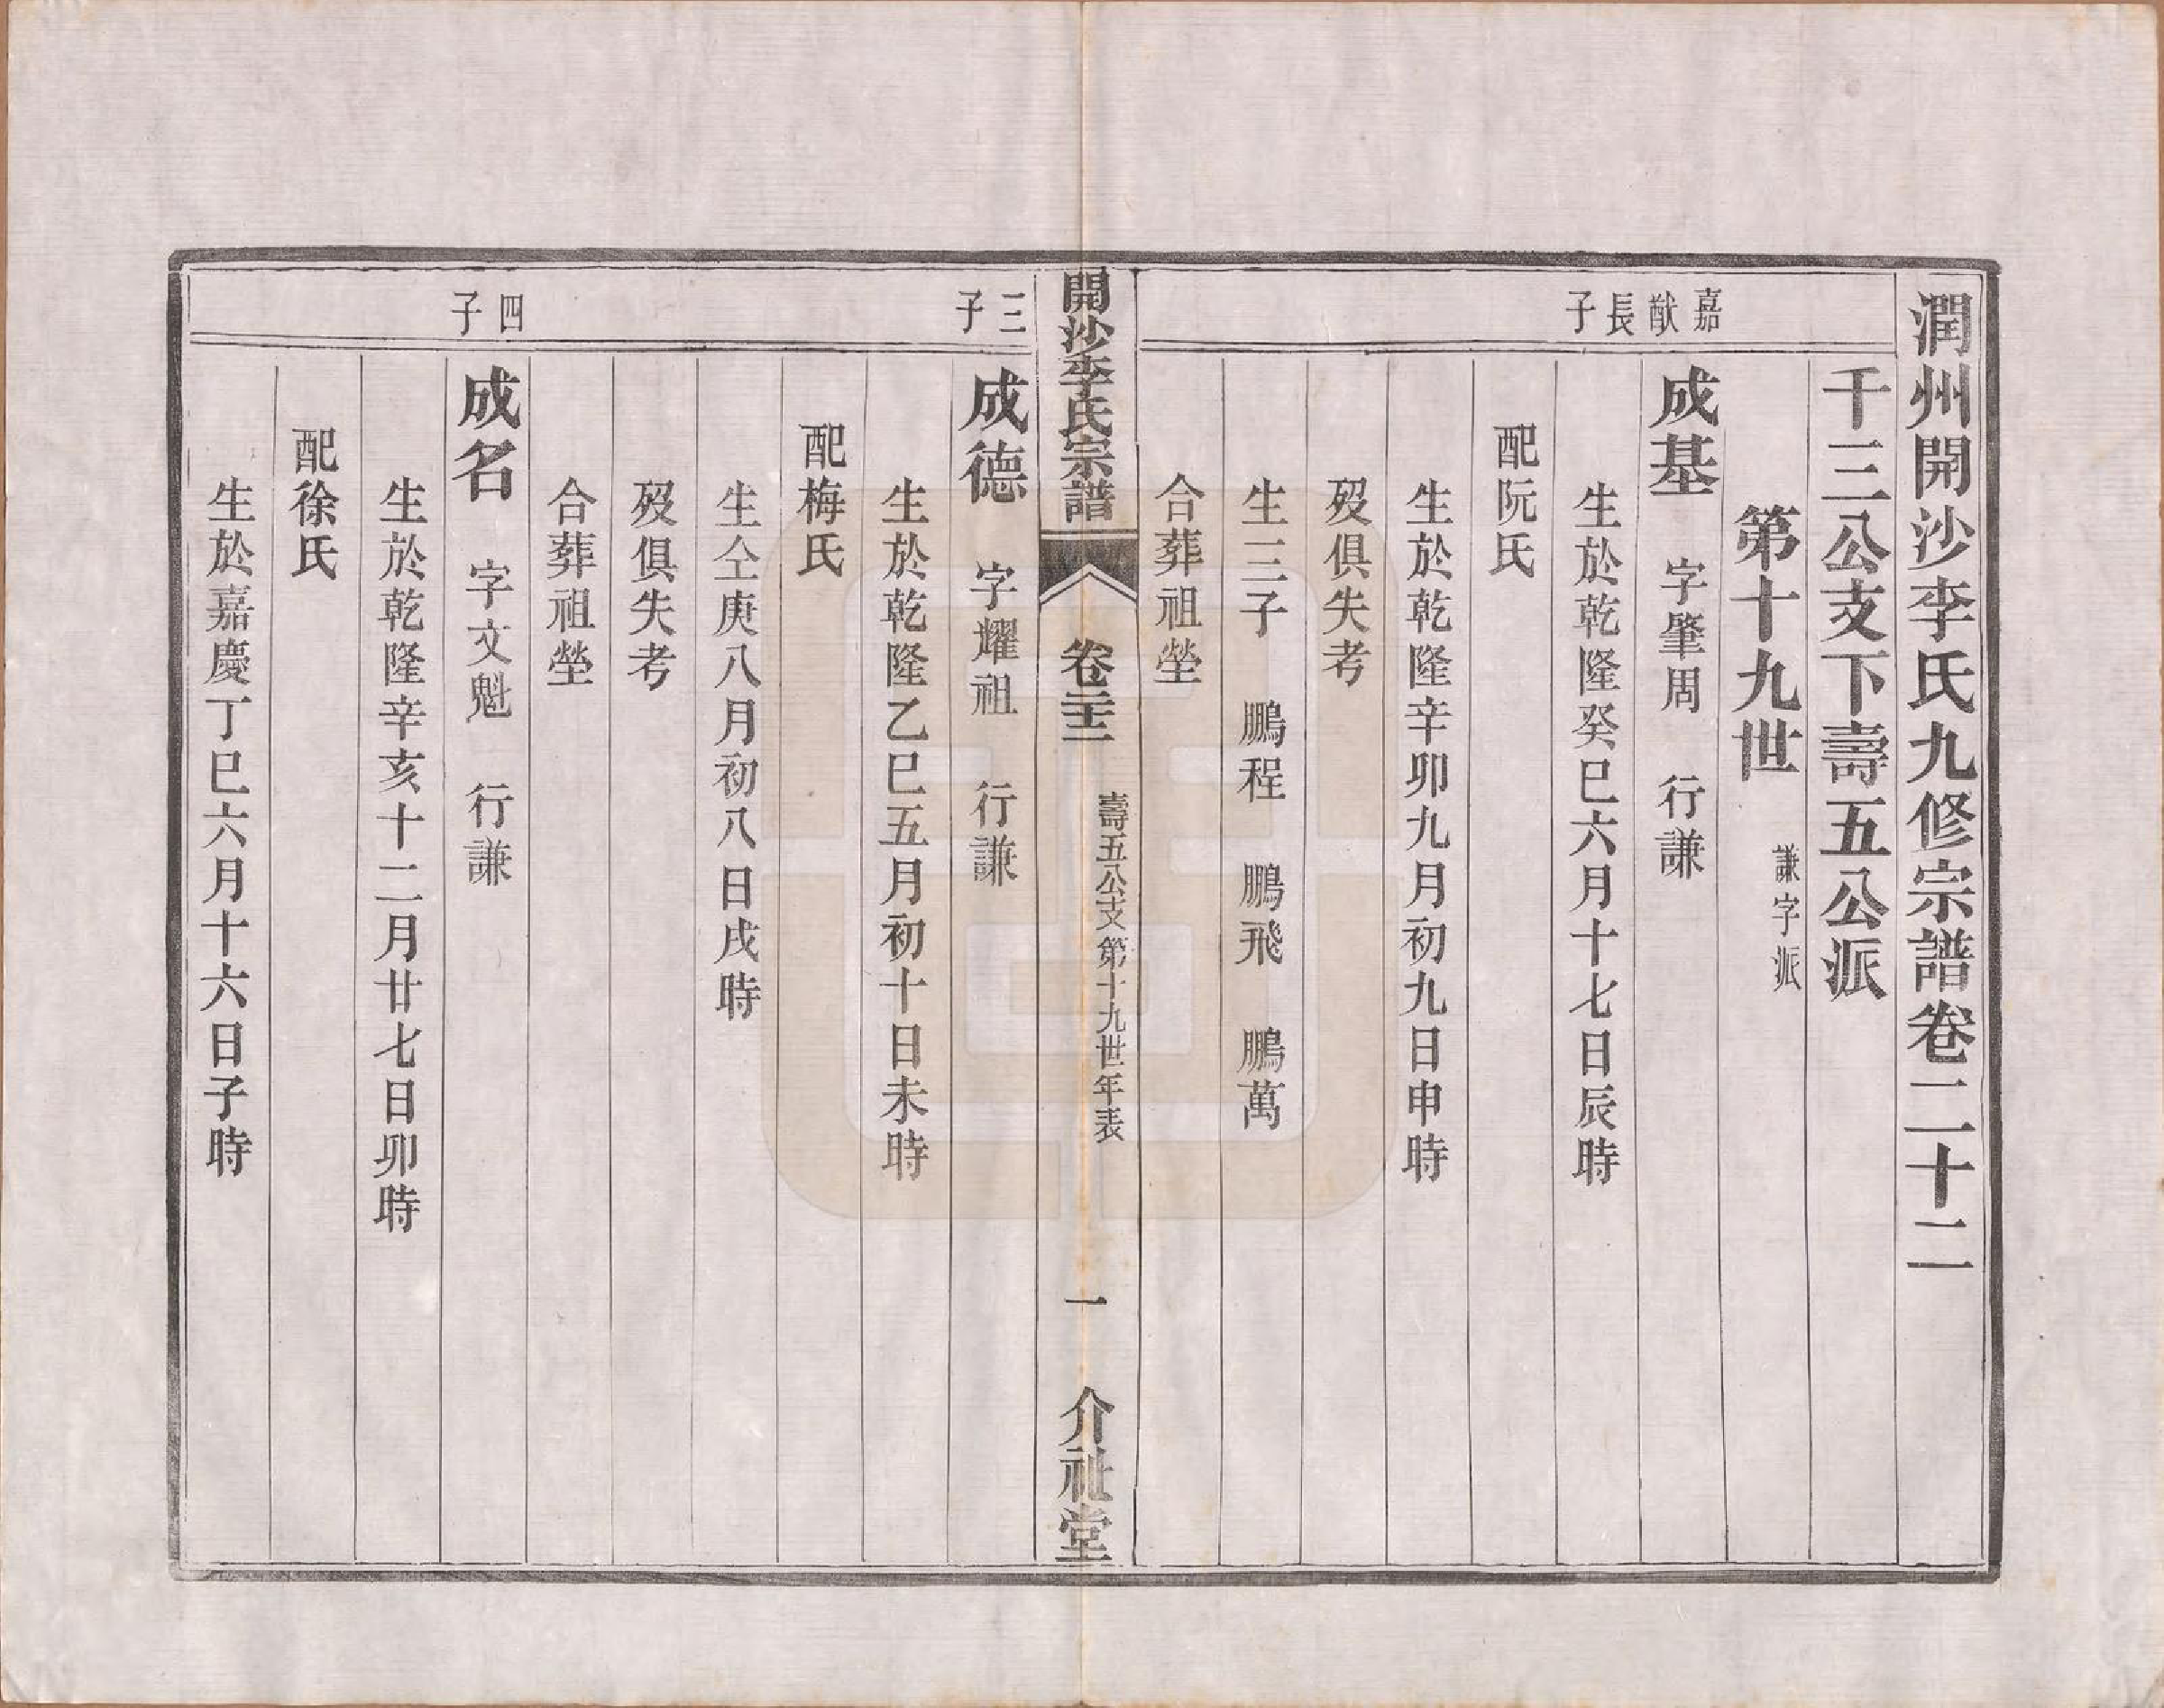 潤州開沙李氏九修宗譜卷二十二
千三公支下壽五公派
第十九世 謙字派
嘉猷長子
成基 字肇周 行謙
生於乾隆癸巳六月十七日辰時
配阮氏
生於乾隆辛卯九月初九日申時
歿俱失考
生三子 鵬程 鵬飛 鵬萬
合葬祖塋
開沙李氏宗譜 卷二十二 壽五公支第十九世年表 一 介祉堂
三子
成德 字耀祖 行謙
生於乾隆乙巳五月初十日未時
配梅氏
生仝庚八月初八日戌時
歿俱失考
合葬祖塋
四子
成名 字文魁 行謙
生於乾隆辛亥十二月廿七日卯時
配徐氏
生於嘉慶丁巳六月十六日子時